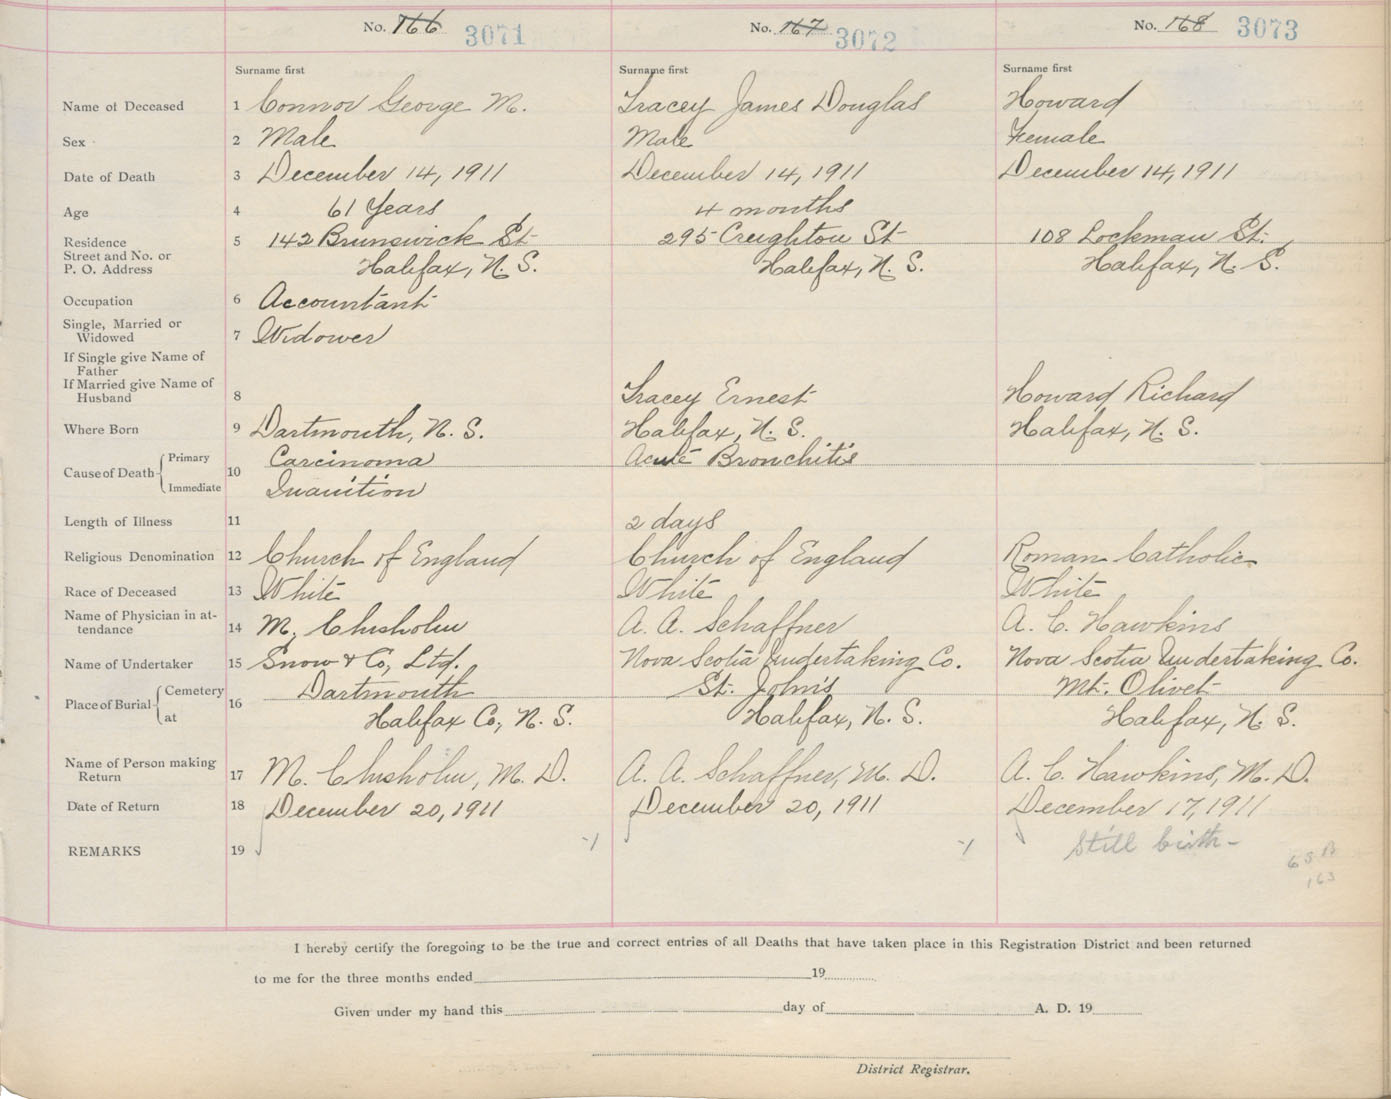 No. 166 3071 No. 167 3072 No. 168 3073
Surname first Surname first Surname first
Name of Deceased 1 Connor George M. Tracey James Douglas Howard
Sex 2 Male Male Female
Date of Death 3 December 14, 1911 December 14, 1911 December 14, 1911
Age 4 61 Years 4 months
Residence 5 142 Brunswick St 295 Creighton St 108 Lockman St.
Street and No. or Halifax, N. S. Halifax, N. S. Halifax, N. S.
P. O. Address
Occupation 6 Accountant
Single, Married or
Widowed 7 Widower
If Single give Name of
Father
If Married give Name of
Husband 8 Tracey Ernest Howard Richard
Where Born 9 Dartmouth, N. S. Halifax, N. S. Halifax, N. S.
Primary Carcinoma Acute Bronchitis
Cause of Death 10
Immediate Inanition
Length of Illness 11 2 days
Religious Denomination 12 Church of England Church of England Roman Catholic
Race of Deceased 13 White White White
Name of Physician in at-
tendance 14 M. Chisholm A. A. Schaffner A. C. Hawkins
Name of Undertaker 15 Snow & Co, Ltd. Nova Scotia Undertaking Co. Nova Scotia Undertaking Co.
Cemetery Dartmouth St. John's Mt. Olivet
Place of Burial 16
at Halifax Co, N. S. Halifax, N. S. Halifax, N. S.
Name of Person making
Return 17 M. Chisholm, M. D. A. A. Schaffner, M. D. A. C. Hawkins, M. D.
Date of Return 18 December 20, 1911 December 20, 1911 December 17, 1911
REMARKS 19 Still birth -
163
I hereby certify the foregoing to be the true and correct entries of all Deaths that have taken place in this Registration District and been returned
to me for the three months ended 19
Given under my hand this day of A. D. 19
District Registrar.